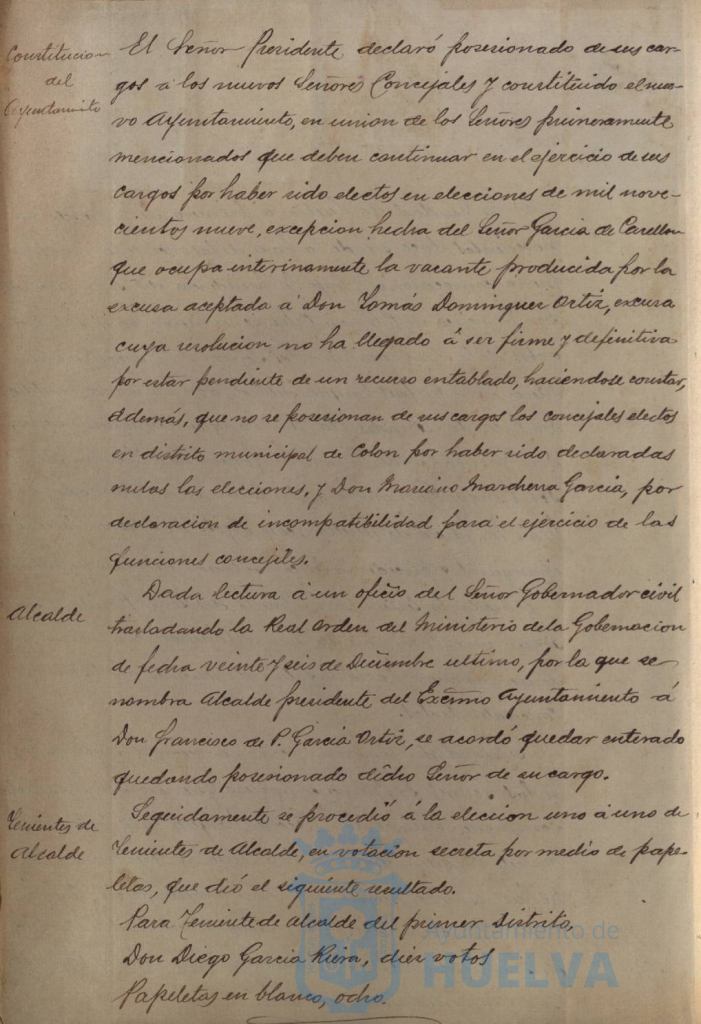 Constitucion
del
Ayuntamiento
El Señor Presidente declaró posesionado de sus car-
gos á los nuevos Señores Concejales y constituido el nue-
vo Ayuntamiento, en union de los Señores primeramente
mencionados que deben continuar en el ejercicio de sus
cargos por haber sido electos en elecciones de mil nove-
cientos nueve, excepcion hecha del Señor Garcia de
que ocupa interinamente la vacante producida por la
excusa aceptada á Don Tomás Dominguez Ortiz, excusa
cuya resolucion no ha llegado á ser firme y definitiva
por estar pendiente de un recurso entablado, haciendose constar,
además, que no se posesionan de sus cargos los concejales electos
en distrito municipal de Colon por haber sido declaradas
nulas las elecciones, y Don Mariano Marchena Garcia, por
declaracion de incompatibilidad para el ejercicio de las
funciones concejiles.
Alcalde
Dada lectura á un oficio del Señor Gobernador civil
trasladando la Real Orden del Ministerio de la Gobernacion
de fecha veinte y seis de Diciembre ultimo, por la que se
nombra Alcalde presidente del Excmo Ayuntamiento á
Don Francisco de P. Garcia Ortiz, se acordó quedar enterado
quedando posesionado dicho Señor de su cargo.
Tenientes de
Alcalde
Seguidamente se procedió á la eleccion uno á uno de
Tenientes de Alcalde, en votacion secreta por medio de pape-
letas, que dió el siguiente resultado.
Para Teniente de alcalde del primer Distrito,
Don Diego Garcia Riera, diez votos
Papeletas en blanco, ocho.
Ayuntamiento de
HUELVA